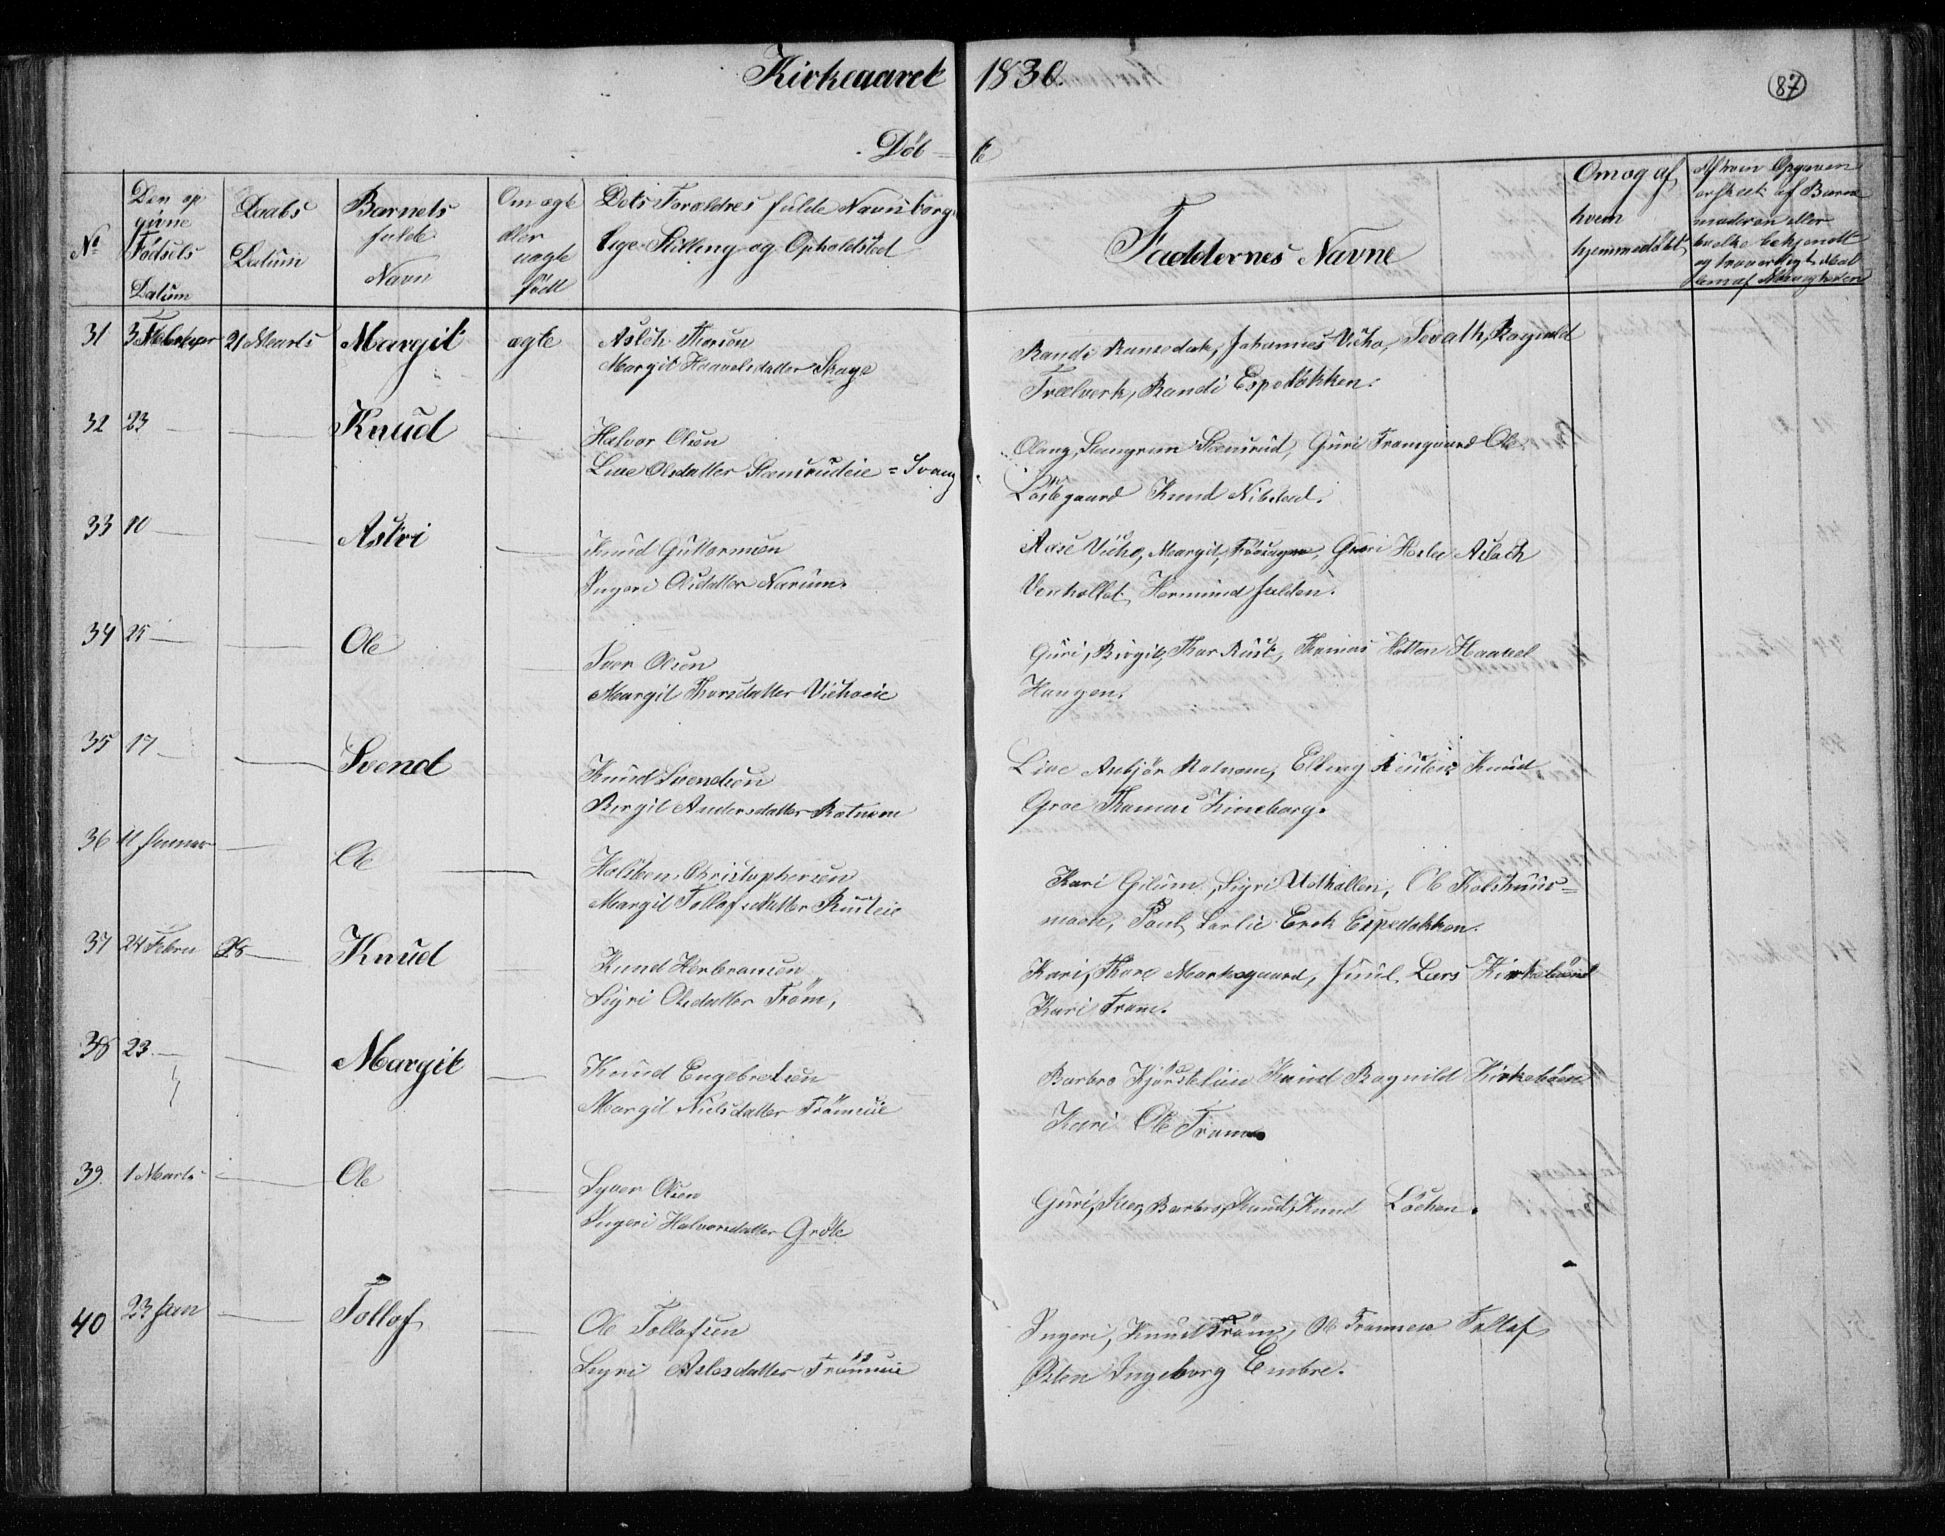 Kirkeaaret 1830.
87
Døbte
No
Den op
givne
Fødsels
Datum
Daabs
Datum
Barnets
fulde
Navn
Om ægte
eller
uægte
født
Dets Forældres fulde Navn borger
lige Stilling og Opholdsted
Faddernes Navne
Om og af
hvem
hjemmedøbt
Af hvem Opgaven
er skeet: af Barne
moderen eller
hvilke bekjendt
og troværdigt Med
lem af Menigheden
31 3 Februar 21 Marts Margit ægte Aslch Thorsen
Margit Haavelsdatter Skage
Randi Ramsedak, Johannes Vicho, Sevath, Ragnild
Trælverk, Randi Espedokken.
32 23 — — Knud — Halvor Olsen
Live Olsdatter Stensrudeie = Svang
Olaug, Steengrim Stensrud, Guri Framgaard Ole
Løstegaard Knud Nibstad.
33 10 — — Astri — Knud Guttormsen
Ingeri Olsdatter Narum.
Aase Vicho, Margit, Guri Aslach
Venhollet, Hermund Juldon.
34 25 — — Ole — Iver Olsen
Margit Thorsdatter Vichoeie
Guri, Birgit, Thor Rust, Thomas Hatten Haavel
Haugen.
35 17 — — Svend — Knud Svendsen
Birgit Andersdatter Rotneme
Live Anbjør Rotnem, Elling Rusteie Knud
Groe Thomas Kinsberg.
36 11 Januar — Ole — Holsten Christophersen
Margit Tollofsdatter Rusteie
Kari Gilum, Sigri Uethollen, Ole Kolshuus=
moen, Poul Larlie Erek Espedokken.
37 24 Febru 28 — Knud — Knud Herbransen
Sigri Olsdatter Trøm,
Kari, Thore Markegaard, Juul, Lars Kirkebøen
Kari Trøm.
38 23 — — Margit — Knud Engebretsen
Margit Nielsdatter Trømeie
Barbro Knud Ragnild Kirkebøen
Kari Ole Trøm
39. 1 Marts — Ole — Syver Olsen
Ingeri Halvorsdatter Grøte
Guri, Iver, Barbro, Knud, Knud Løchen.
40 23 Jan — Tollof — Ole Tollofsen
Sigri Aslesdatter Trømeie
Ingeri, Knud Trøm, Ole Tollof
Østen Ingeborg Embre.